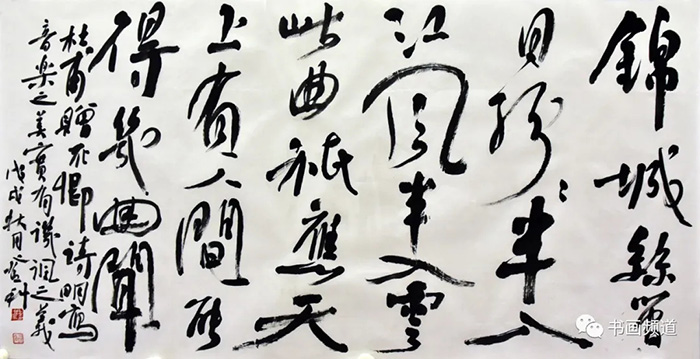 錦城絲管
日紛〻半入
江風半入雲
此曲祇應天
上有人間能
得幾曲聞
杜甫贈花卿詩明寫
音樂之美實有之義
戊戌秋月登科
书画频道